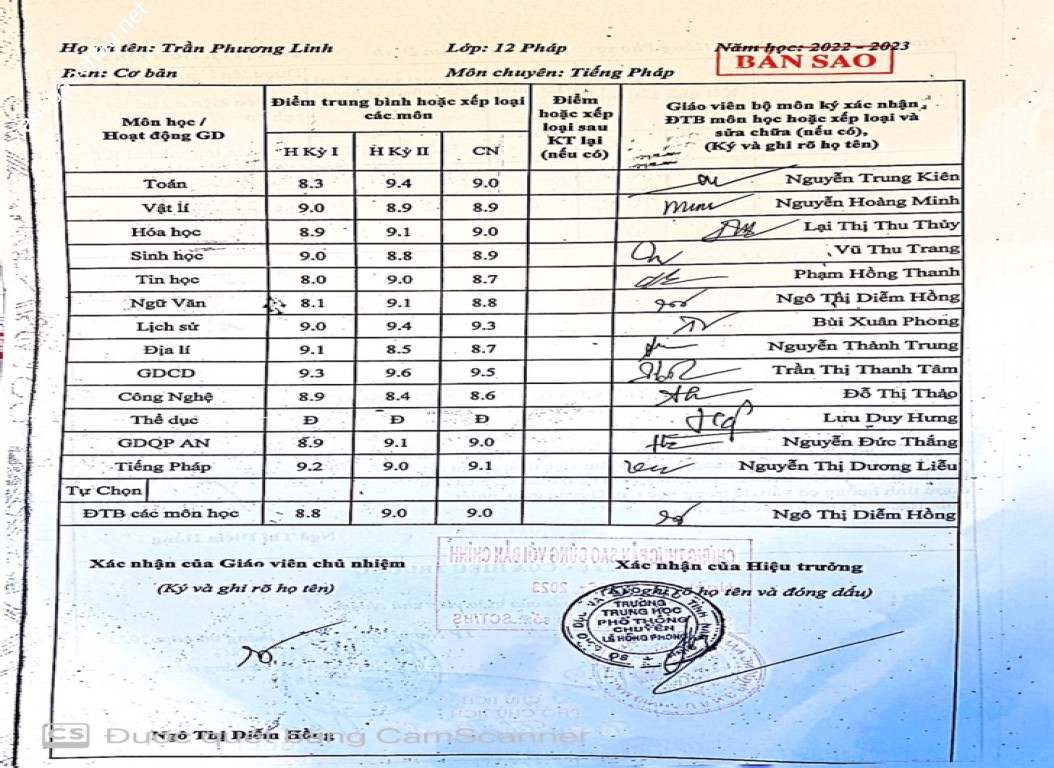 Họ và tên: Trần Phương Linh Lớp: 12 Pháp Năm học: 2022 - 2023
BẢN SAO
Ban: Cơ bản Môn chuyên: Tiếng Pháp
Môn học / Hoạt động GD
Điểm trung bình hoặc xếp loại các môn
H Kỳ I H Kỳ II CN
Điểm hoặc xếp loại sau KT lại (nếu có)
Giáo viên bộ môn ký xác nhận ĐTB môn học hoặc xếp loại và sửa chữa (nếu có), (Ký và ghi rõ họ tên)
Toán 8.3 9.4 9.0 Nguyễn Trung Kiên
Vật lí 9.0 8.9 8.9 Nguyễn Hoàng Minh
Hóa học 8.9 9.1 9.0 Lại Thị Thu Thủy
Sinh học 9.0 8.8 8.9 Vũ Thu Trang
Tin học 8.0 9.0 8.7 Phạm Hồng Thanh
Ngữ Văn 8.1 9.1 8.8 Ngô Thị Diễm Hồng
Lịch sử 9.0 9.4 9.3 Bùi Xuân Phong
Địa lí 9.1 8.5 8.7 Nguyễn Thành Trung
GDCD 9.3 9.6 9.5 Trần Thị Thanh Tâm
Công Nghệ 8.9 8.4 8.6 Đỗ Thị Thảo
Thể dục Đ Đ Đ Lưu Duy Hưng
GDQP AN 8.9 9.1 9.0 Nguyễn Đức Thắng
Tiếng Pháp 9.2 9.0 9.1 Nguyễn Thị Dương Liễu
Tự Chọn
ĐTB các môn học 8.8 9.0 9.0 Ngô Thị Diễm Hồng
Xác nhận của Giáo viên chủ nhiệm Xác nhận của Hiệu trưởng
(Ký và ghi rõ họ tên) (Ký, ghi rõ họ tên và đóng dấu)
TRƯỜNG
TRUNG HỌC
PHỔ THÔNG
CHUYÊN
LÊ HỒNG PHONG
Ngô Thị Diễm Hồng
CS Được quét bằng CamScanner